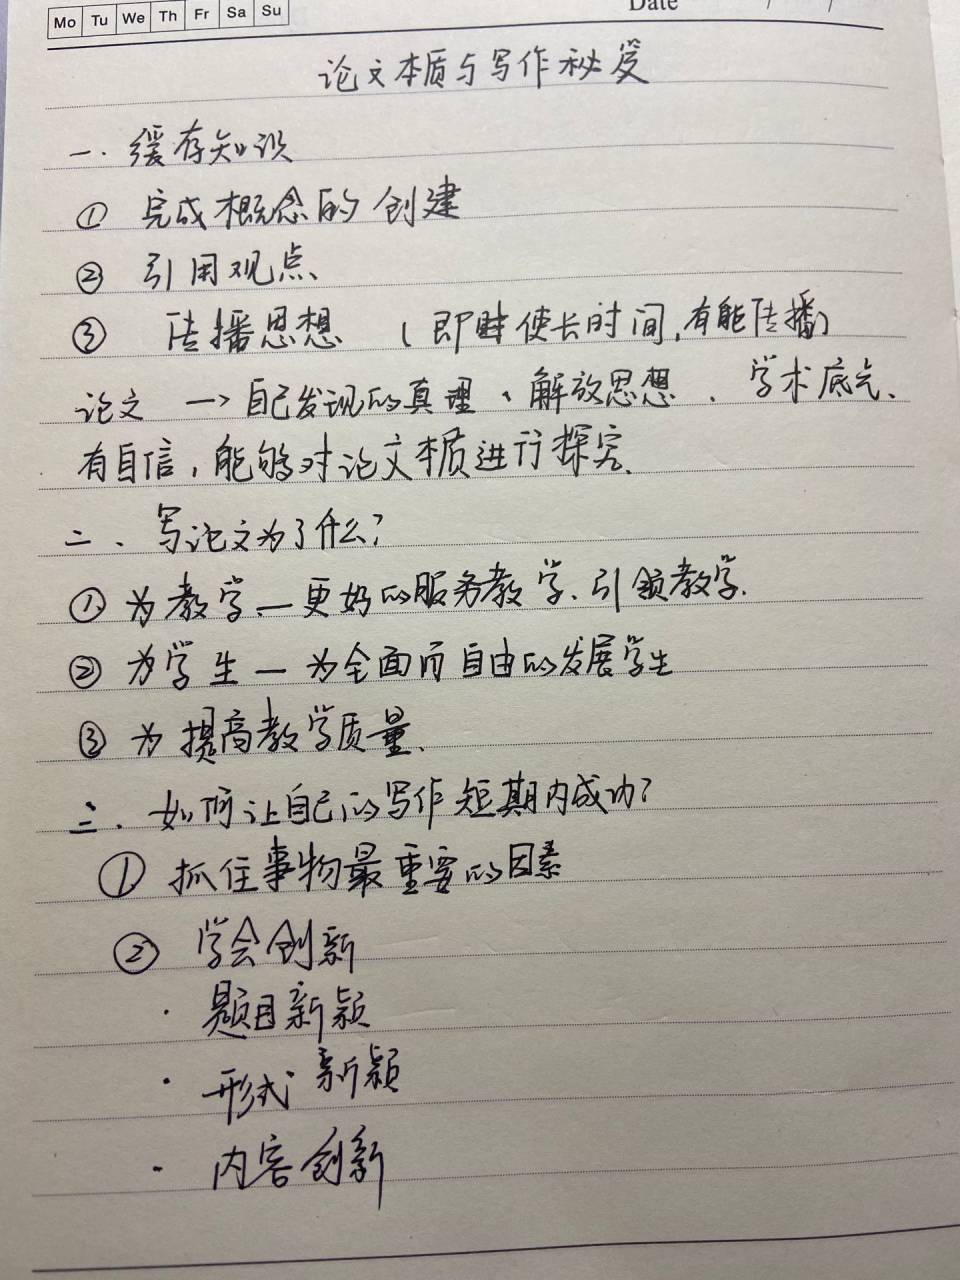 Mo Tu We Th Fr Sa Su
Date / /
论文本质与写作秘笈
一. 缓存知识
① 完成概念的创建
② 引用观点、
③ 传播思想 (即时使长时间,有能传播)
论文 → 自己发现的真理、解放思想 、学术底气、
有自信,能够对论文本质进行探究、
二、写论文为了什么?
① 为教学—更好的服务教学、引领教学.
② 为学生—为全面而自由的发展学生
③ 为提高教学质量、
三、如何让自己的写作短期内成功?
① 抓住事物最重要的因素
② 学会创新
· 题目新颖
· 形式新颖
· 内容创新